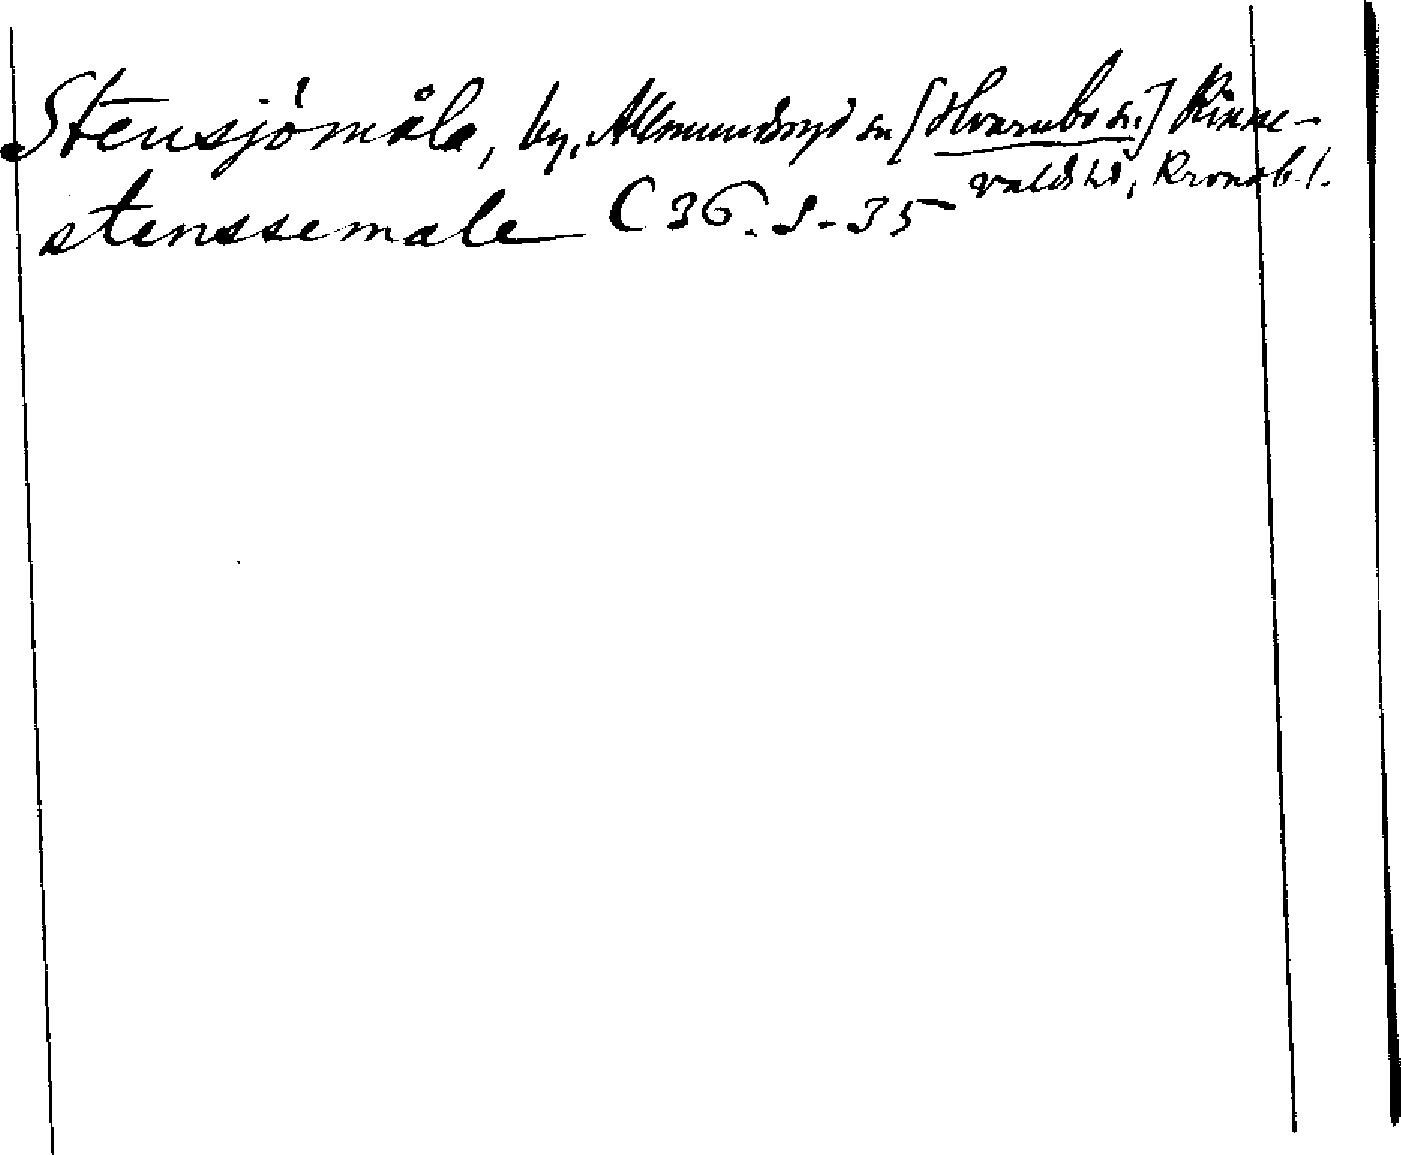 Stensjömåla, by, Almundsryd sn [Hvarabo sn.] Kinne-
valds hd, Kronob. l.
stenssemale C 36. I-35